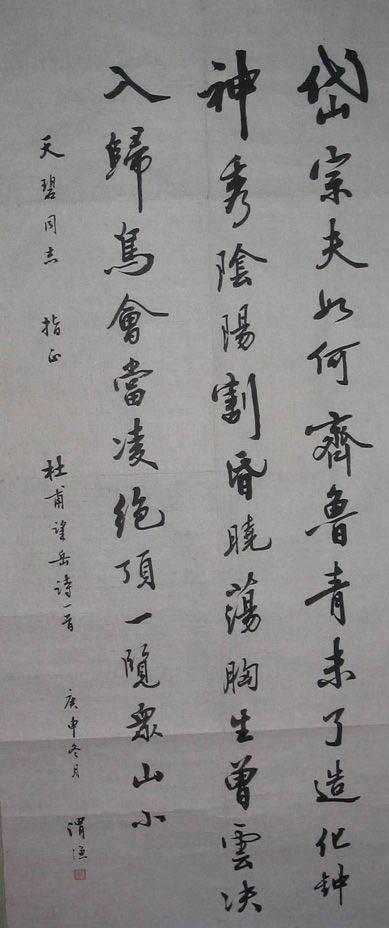 岱宗夫如何齊魯青未了造化鍾
神秀陰陽割昏曉蕩胸生曾雲决
入歸鳥會當凌絕頂一覽眾山小
天碧同志 指正 杜甫望岳詩一首 庚申冬月 渭漁